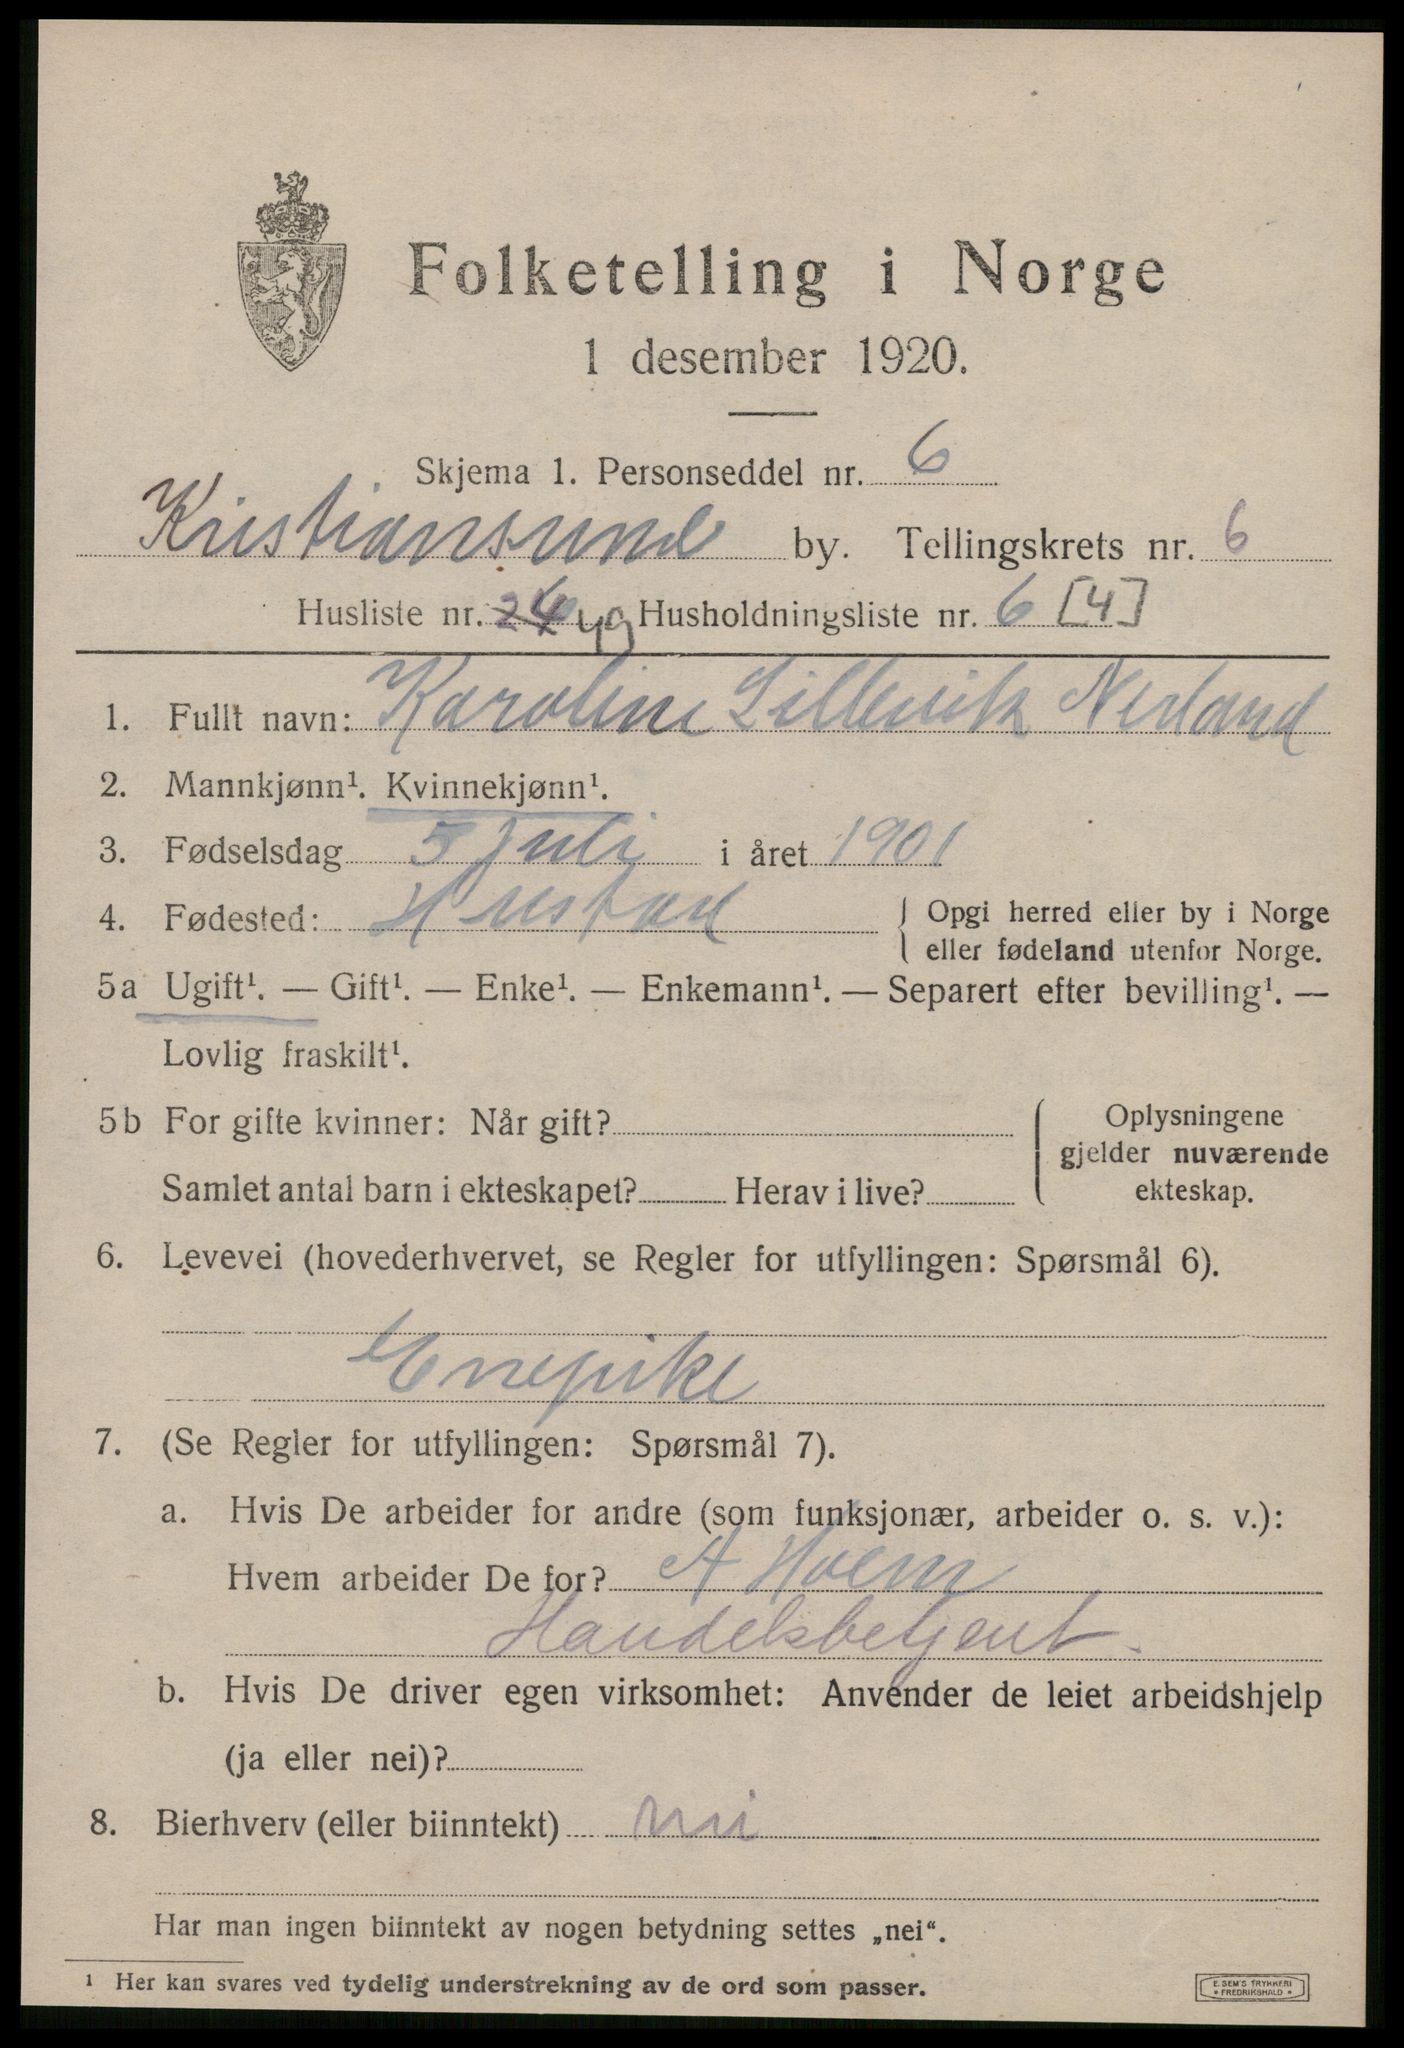 Folketelling i Norge
1 desember 1920.
Skjema 1. Personseddel nr. 6
Kristiansund by. Tellingskrets nr. 6
Husliste nr. 49 Husholdningsliste nr. 6 [4]
1. Fullt navn: Karoline Lillevik Nerland
2. Mannkjønn¹. Kvinnekjønn¹.
3. Fødselsdag 5 juli i året 1901
4. Fødested: Hustad { Opgi herred eller by i Norge
eller fødeland utenfor Norge.
5a Ugift¹. — Gift¹. — Enke¹. — Enkemann¹. — Separert efter bevilling¹. —
Lovlig fraskilt¹.
5b For gifte kvinner: Når gift? { Oplysningene
gjelder nuværende
Samlet antal barn i ekteskapet? Herav i live? ekteskap.
6. Levevei (hovederhvervet, se Regler for utfyllingen: Spørsmål 6).
Enepike
7. (Se Regler for utfyllingen: Spørsmål 7).
a. Hvis De arbeider for andre (som funksjonær, arbeider o. s. v.):
Hvem arbeider De for? A Hoem
Handelsbetjent.
b. Hvis De driver egen virksomhet: Anvender de leiet arbeidshjelp
(ja eller nei)?
8. Bierhverv (eller biinntekt) nei
Har man ingen biinntekt av nogen betydning settes „nei“.
¹ Her kan svares ved tydelig understrekning av de ord som passer.
E. SEM'S TRYKKERI
* FREDRIKSHALD *